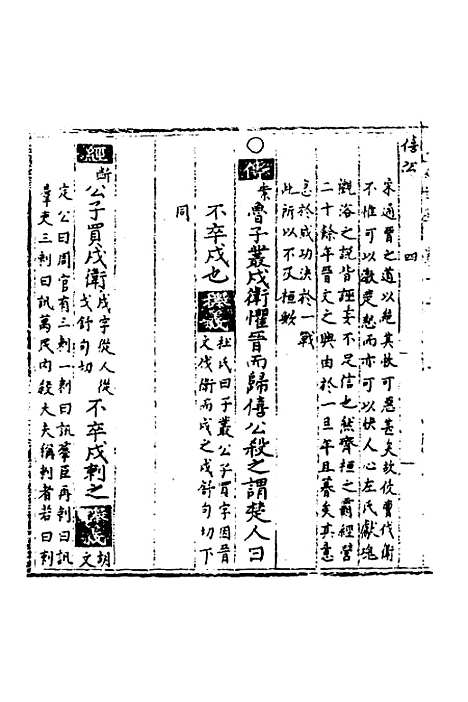 僖公
四
宋通晉之道以絕其故可惡甚矣故伐曹伐衛
不惟可以激楚怒而亦可以快人心左氏獻塊
觀浴之說皆誣妄不足信也然齊桓之霸經營
二十餘年晉文之興由於一旦年且暮矣其意
急於成功決於一戰
此所以不及桓歟
傳案魯子叢戍衛懼晉而歸僖公殺之謂楚人曰
不卒戍也
杜氏曰子叢公子買字因晉
文伐衛而戍之戍舒句切下
同
經斷公子買戍衛
戍字從人從
戈舒句切
不卒戍刺之
胡
文
定公曰周官有三刺一刺曰訊羣臣再刺曰訊
羣吏三刺曰訊萬民內殺大夫稱刺者若曰刺